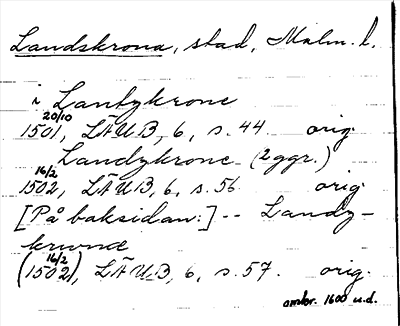 Landskrona, stad, Malm. l.
i Lantzkrone
20/10 1501, LÄUB, 6, s. 44 orig.
Landzkrone (2 ggr.)
16/2 1502, LÄUB, 6, s. 56 orig
[På baksidan:] -- Landz-
krwnæ
(16/2 1502), LÄUB, 6, s. 57. orig.
omkr. 1600 u.d.